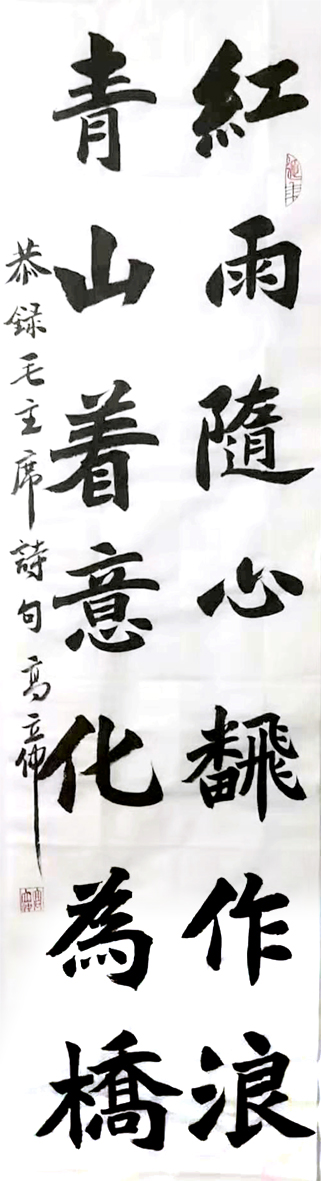 紅雨隨心飜作浪
青山着意化為橋
恭録毛主席詩句高立偉